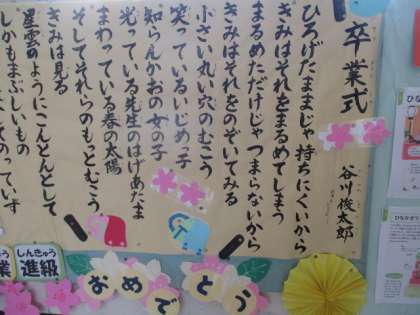 卒業式
谷川俊太郎
ひろげたままじゃ持ちにくいから
きみはそれをまるめてしまう
まるめただけじゃつまらないから
きみはそれをのぞいてみる
小さい丸い穴のむこう
笑っているいじめっ子
知らんかおの女の子
光っている先生のはげあたま
まわっている春の太陽
そしてそれらのもっとむこう
きみは見る
星雲のようにこんとんとして
しかもまぶしいもの
のっていず
業
しんきゅう
進級
おめでとう